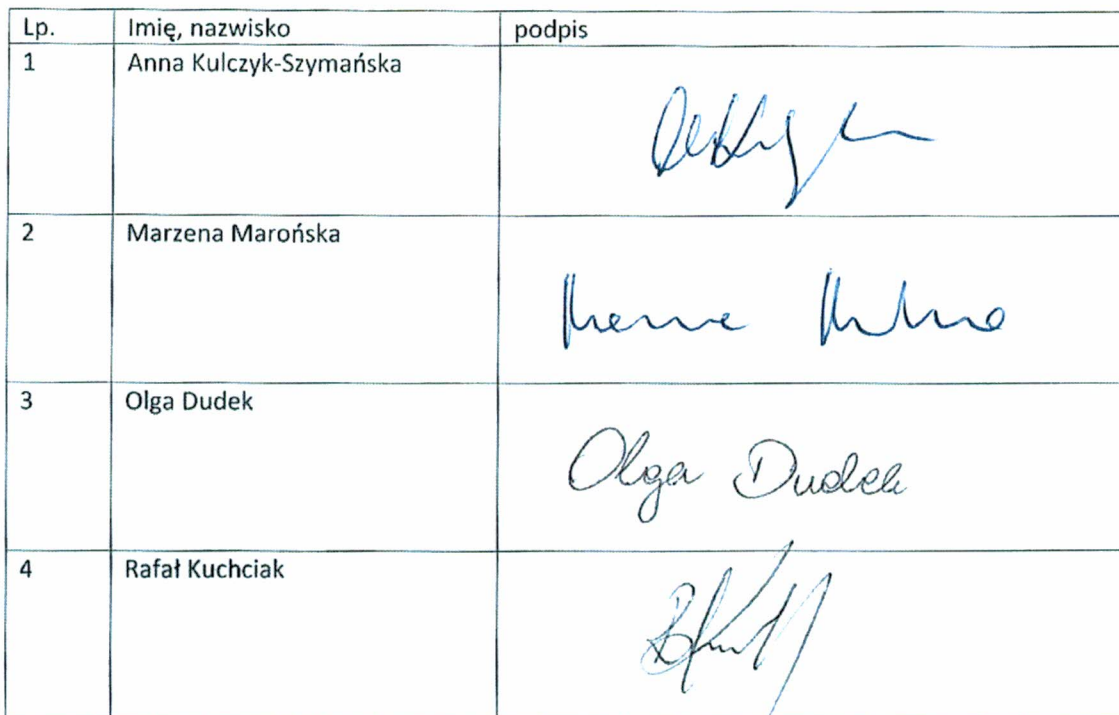 Lp. Imię, nazwisko podpis
1 Anna Kulczyk-Szymańska
2 Marzena Marońska
3 Olga Dudek Olga Dudek
4 Rafał Kuchciak